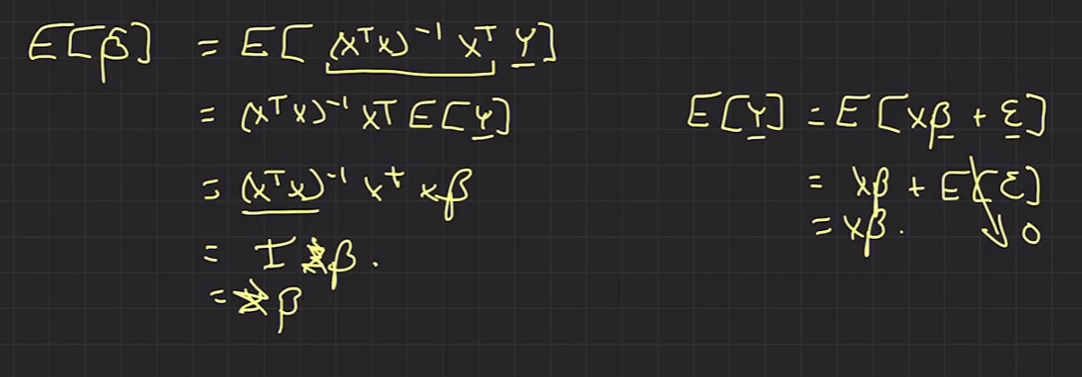 E[β̂] = E[(XᵀX)⁻¹ Xᵀ Y]
= (XᵀX)⁻¹ Xᵀ E[Y]
= (XᵀX)⁻¹ Xᵀ Xβ
= I β.
= β
E[Y] = E[Xβ + ε]
= Xβ + E[ε] 0
= Xβ.